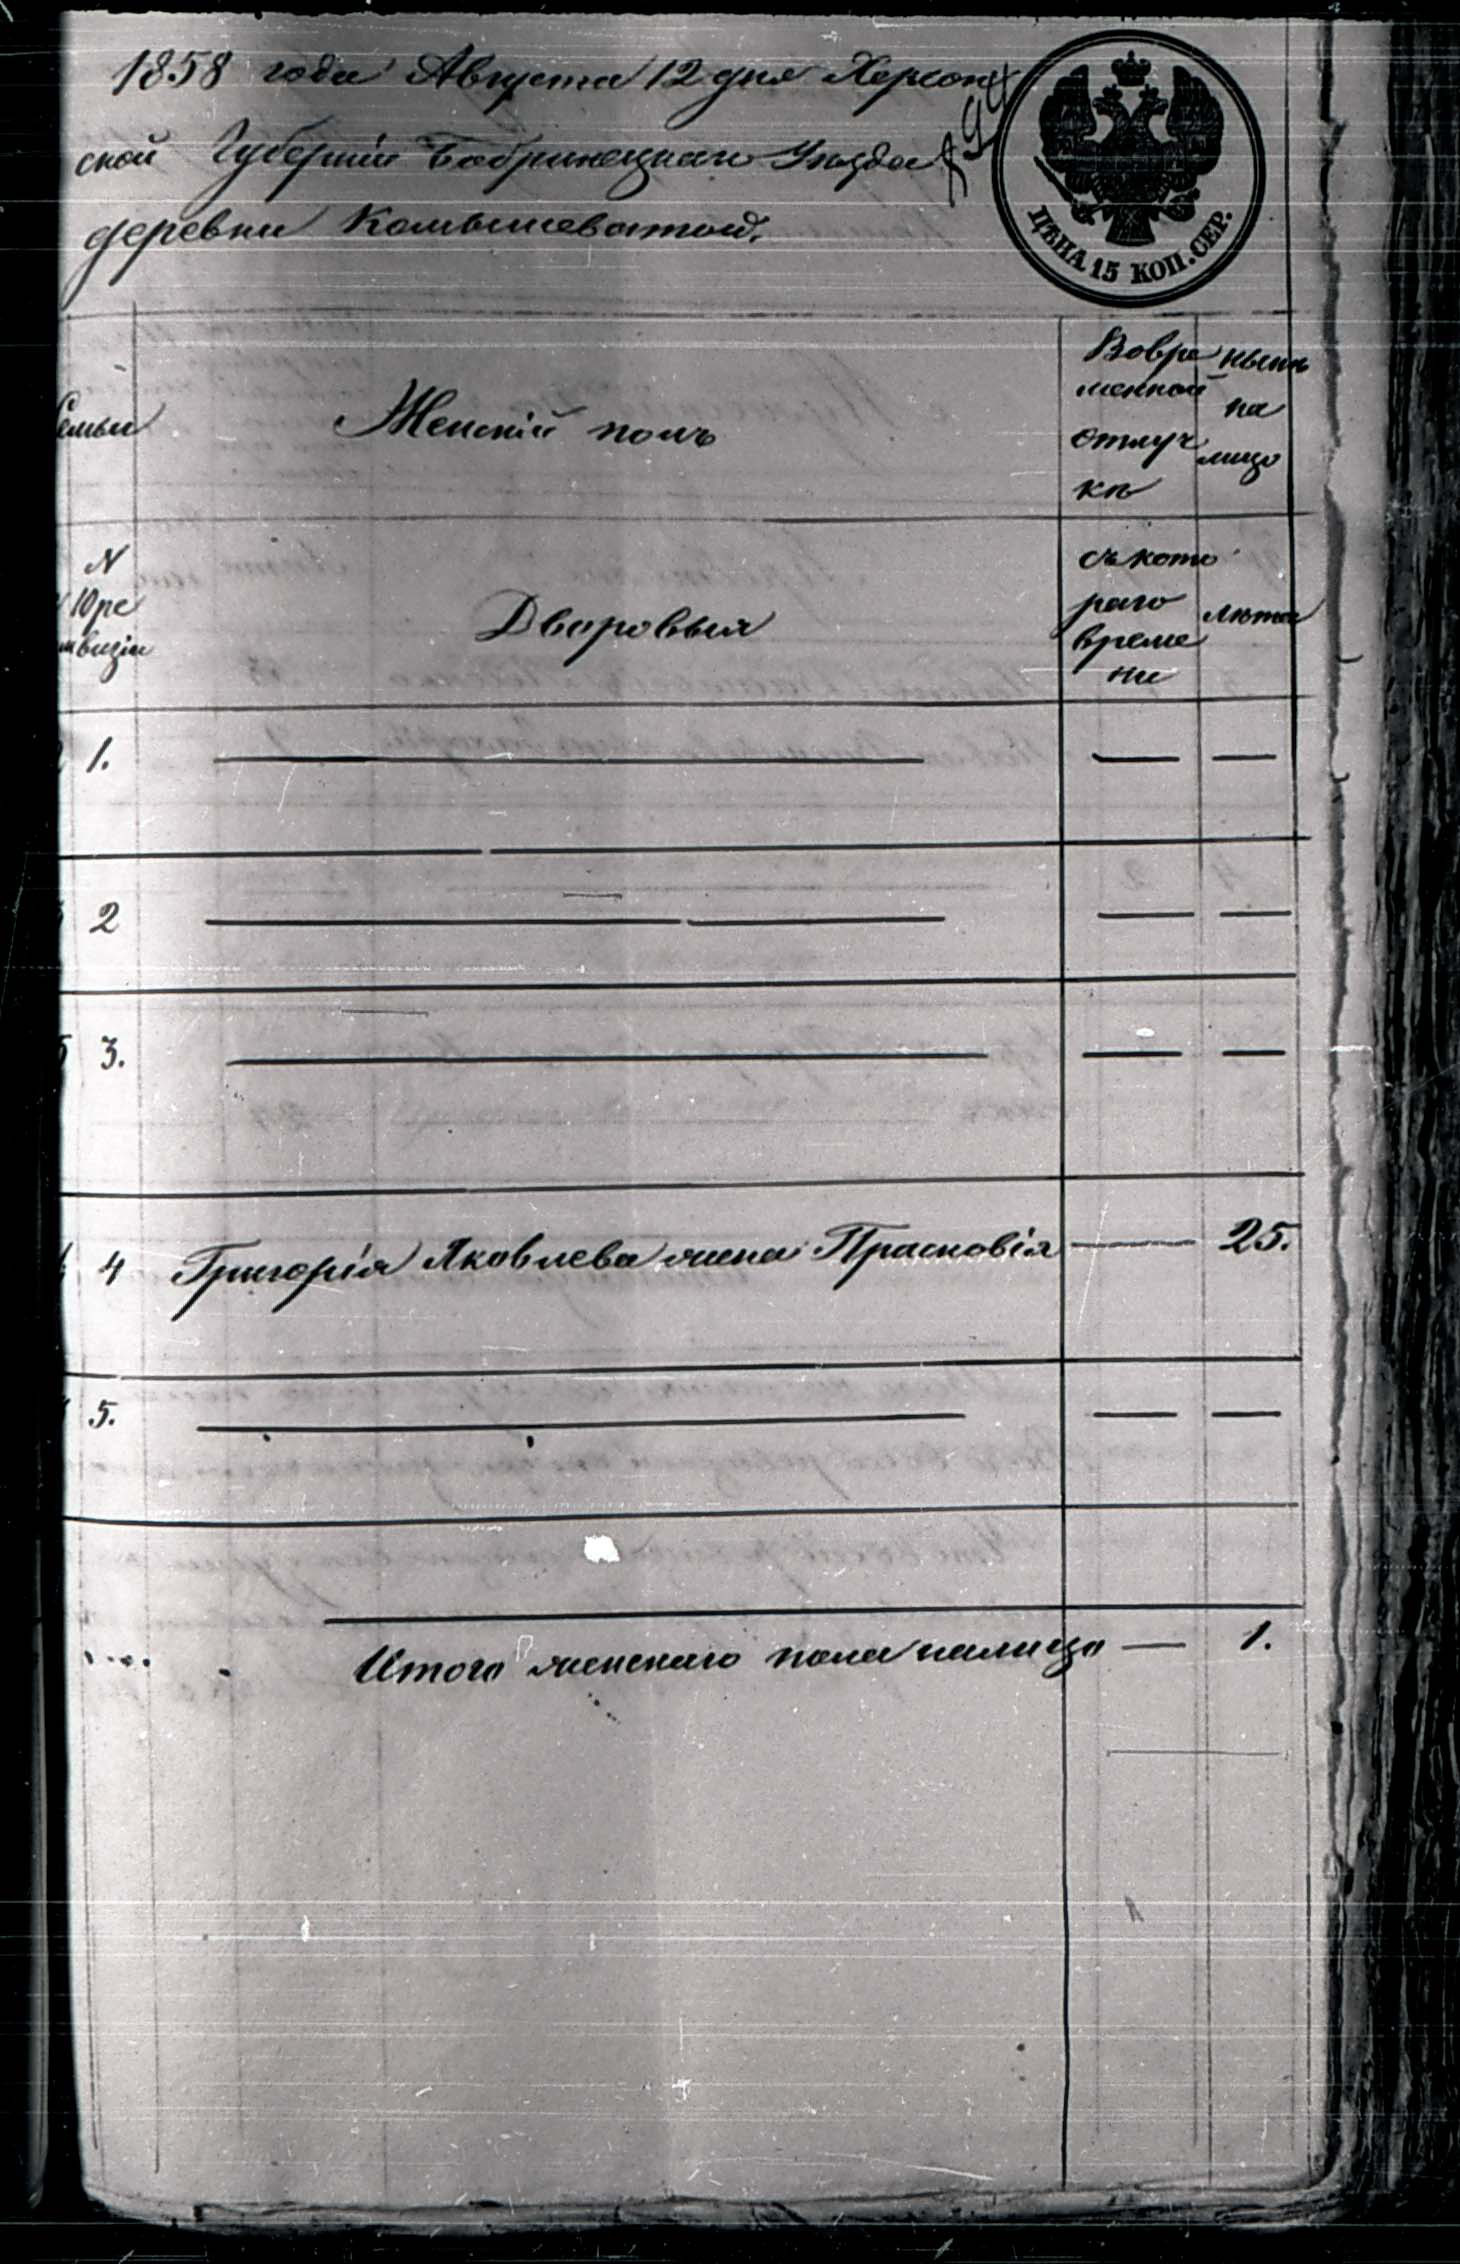 1858 года Августа 12 дня Херсон
ской Губерніи Бобринецкаго Уѣзда
деревни Камышеватой.
ЦѢНА 15 КОП. СЕР.
Семьи
Женскій полъ
Вовре
менной
отлуч
кѣ
нынѣ
на
лицо
N
10 ре
визіи
Дворовыя
съ кото
раго
време
ни
лѣта
1.
2
3.
4 Григорія Яковлева жена Прасковія — 25.
5.
Итого женскаго пола налицо — 1.